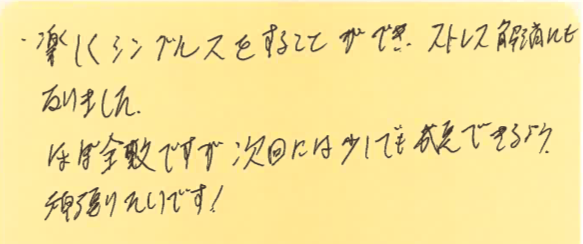 ・楽しくシングルスをすることができ、ストレス解消にも
なりました。
ほぼ全敗ですが次回には少しでも成長できるよう、
頑張りたいです！